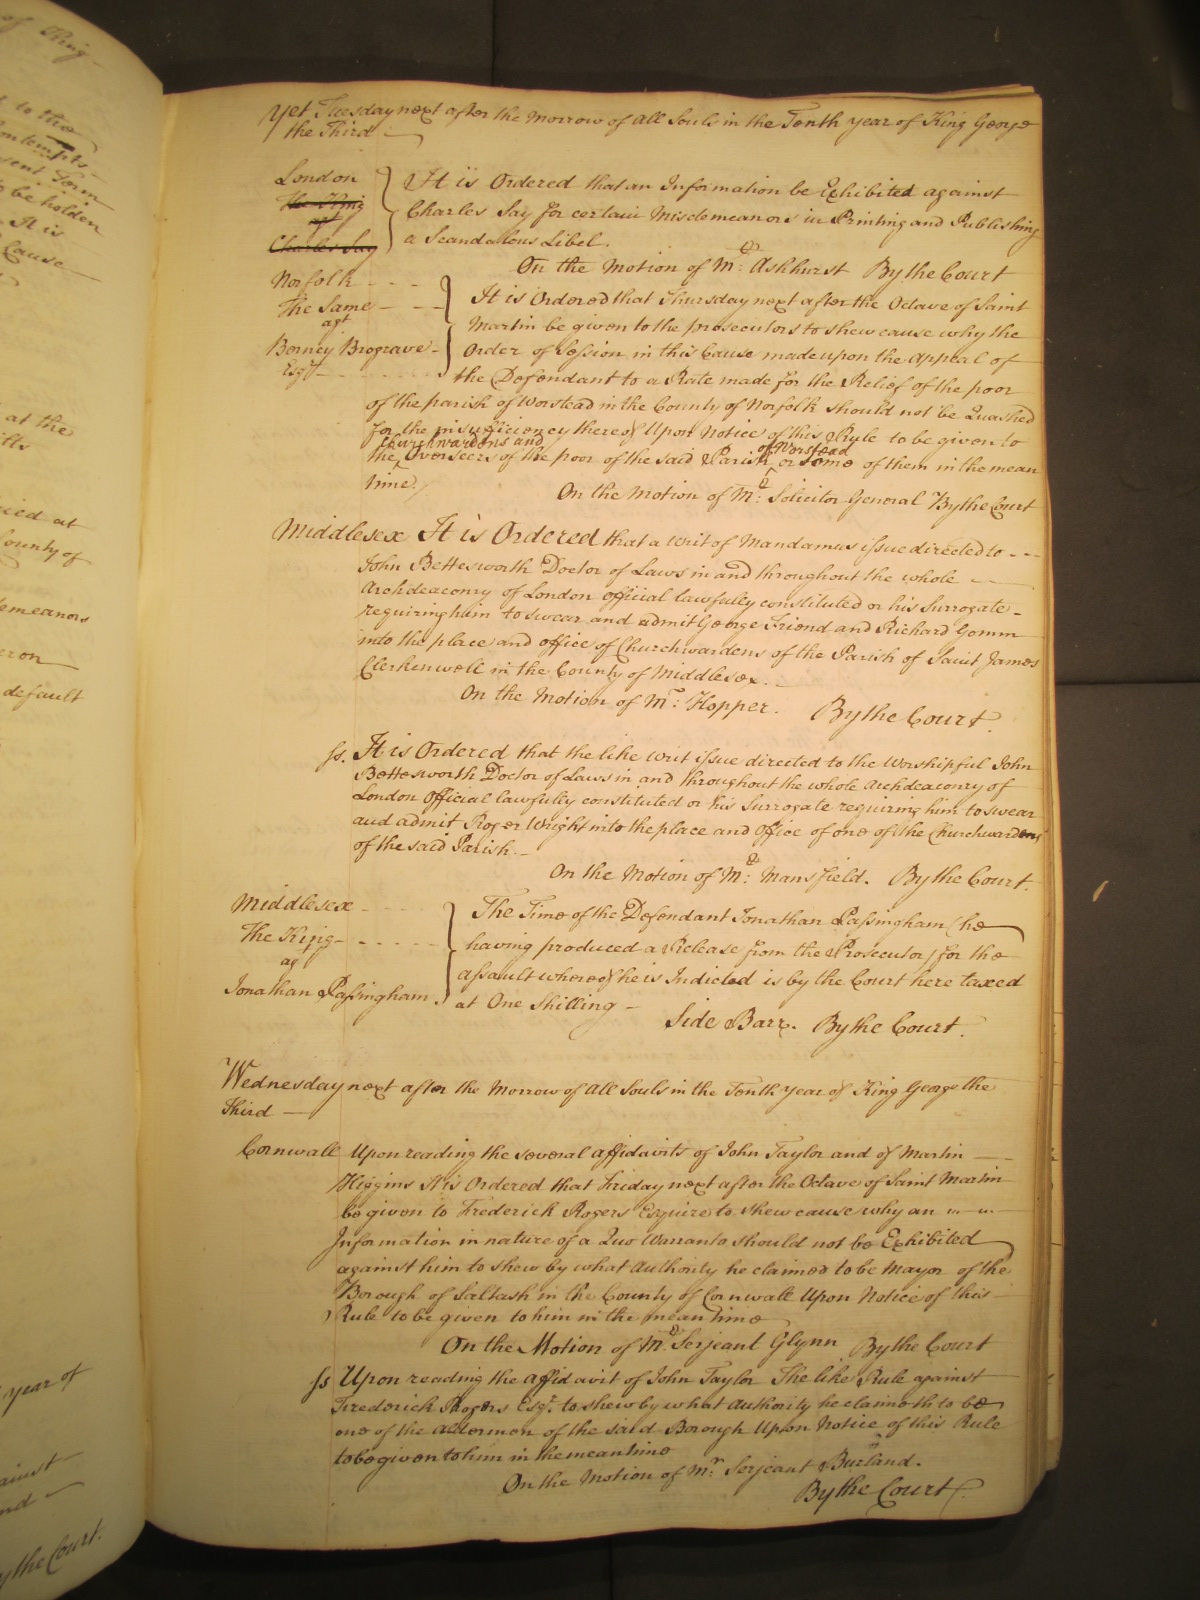 of King
to the
Contempts
sent Term
to be holden
It is
Cause
at the
ried at
County of
demeanors
default
year of
ainst
nd
By the Court.
Yet Tuesday next after the Morrow of All Souls in the Tenth year of King George
the Third
London
The King
agt
Charles Say
It is Ordered that an Information be Exhibited against
Charles Say for certain Misdemeanors in Printing and Publishing
a Scandalous Libel.
On the Motion of Mr. Ashhurst By the Court
Norfolk
The Same
agt
Berney Brograve
Esqr
It is Ordered that Thursday next after the Octave of Saint
Martin be given to the prosecutors to shew cause why the
Order of Session in this Cause made upon the Appeal of
the Defendant to a Rate made for the Relief of the poor
of the parish of Worstead in the County of Norfolk should not be Quashed
for the insufficiency thereof Upon Notice of this Rule to be given to
Churchwardens and of Worstead
the Overseers of the poor of the said Parish or some of them in the mean
time.
On the Motion of Mr. Solicitor General By the Court
Middlesex It is Ordered that a Writ of Mandamus issue directed to
John Bettesworth Doctor of Laws in and throughout the whole
Archdeaconry of London official lawfully constituted or his Surrogate
requiring him to swear and admit George Friend and Richard Gomm
into the place and office of Churchwardens of the Parish of Saint James
Clerkenwell in the County of Middlesex.
On the Motion of Mr. Hopper. By the Court.
ss. It is Ordered that the like Writ issue directed to the Worshipful John
Bettesworth Doctor of Laws in and throughout the whole Archdeaconry of
London Official lawfully constituted or his Surrogate requiring him to swear
and admit Roger Wright into the place and Office of one of the Churchwardens
of the said Parish
On the Motion of Mr. Mansfield. By the Court.
Middlesex
The King
agt
Jonathan Passingham
The Time of the Defendant Jonathan Passingham (he
having produced a Release from the Prosecutor) for the
assault whereof he is Indicted is by the Court here taxed
at One Shilling
Side Barr. By the Court.
Wednesday next after the Morrow of All Souls in the Tenth Year of King George the
Third
Cornwall Upon reading the several affidavits of John Taylor and of Martin
Higgins It is Ordered that Friday next after the Octave of Saint Martin
be given to Frederick Rogers Esquire to shew cause why an
Information in nature of a Quo Warranto should not be Exhibited
against him to shew by what Authority he claimed to be Mayor of the
Borough of Saltash in the County of Cornwall Upon Notice of this
Rule to be given to him in the mean time
On the Motion of Mr. Serjeant Glynn By the Court
ss Upon reading the affidavit of John Taylor The like Rule against
Frederick Rogers Esqr. to shew by what Authority he claimeth to be
one of the aldermen of the said Borough Upon Notice of this Rule
to be given to him in the mean time
On the Motion of Mr. Serjeant Burland.
By the Court